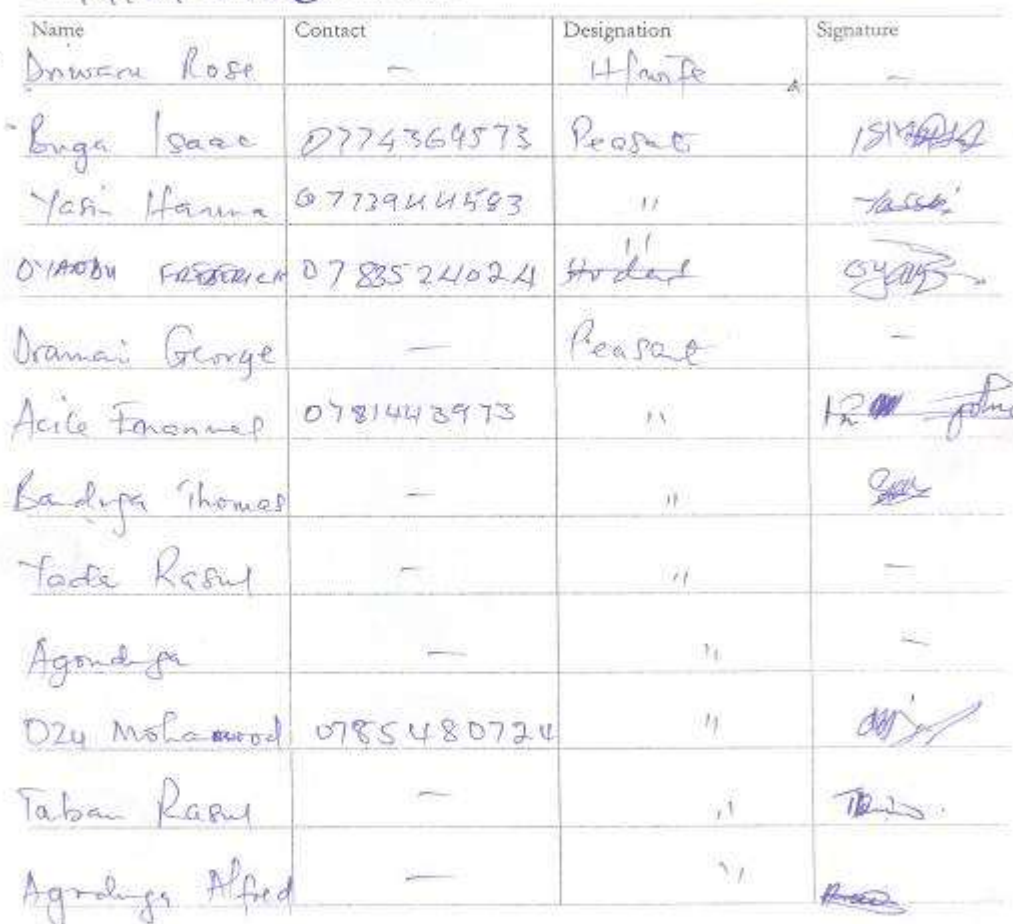 Name Contact Designation Signature
Rose — H/wife —
Buga Isaac 0774369573 Peasant
Yasin Haruna 0773944593 " Yassin
FREDERICK 0783524024 "
Dramai George — Peasant —
Acile Emmanuel 0781443973 "
Banduga Thomas — "
Rasul — " —
Agonduga — " —
Ozu Mohamood 0785480724 "
Taban Rasul — "
Agonduga Alfred — "